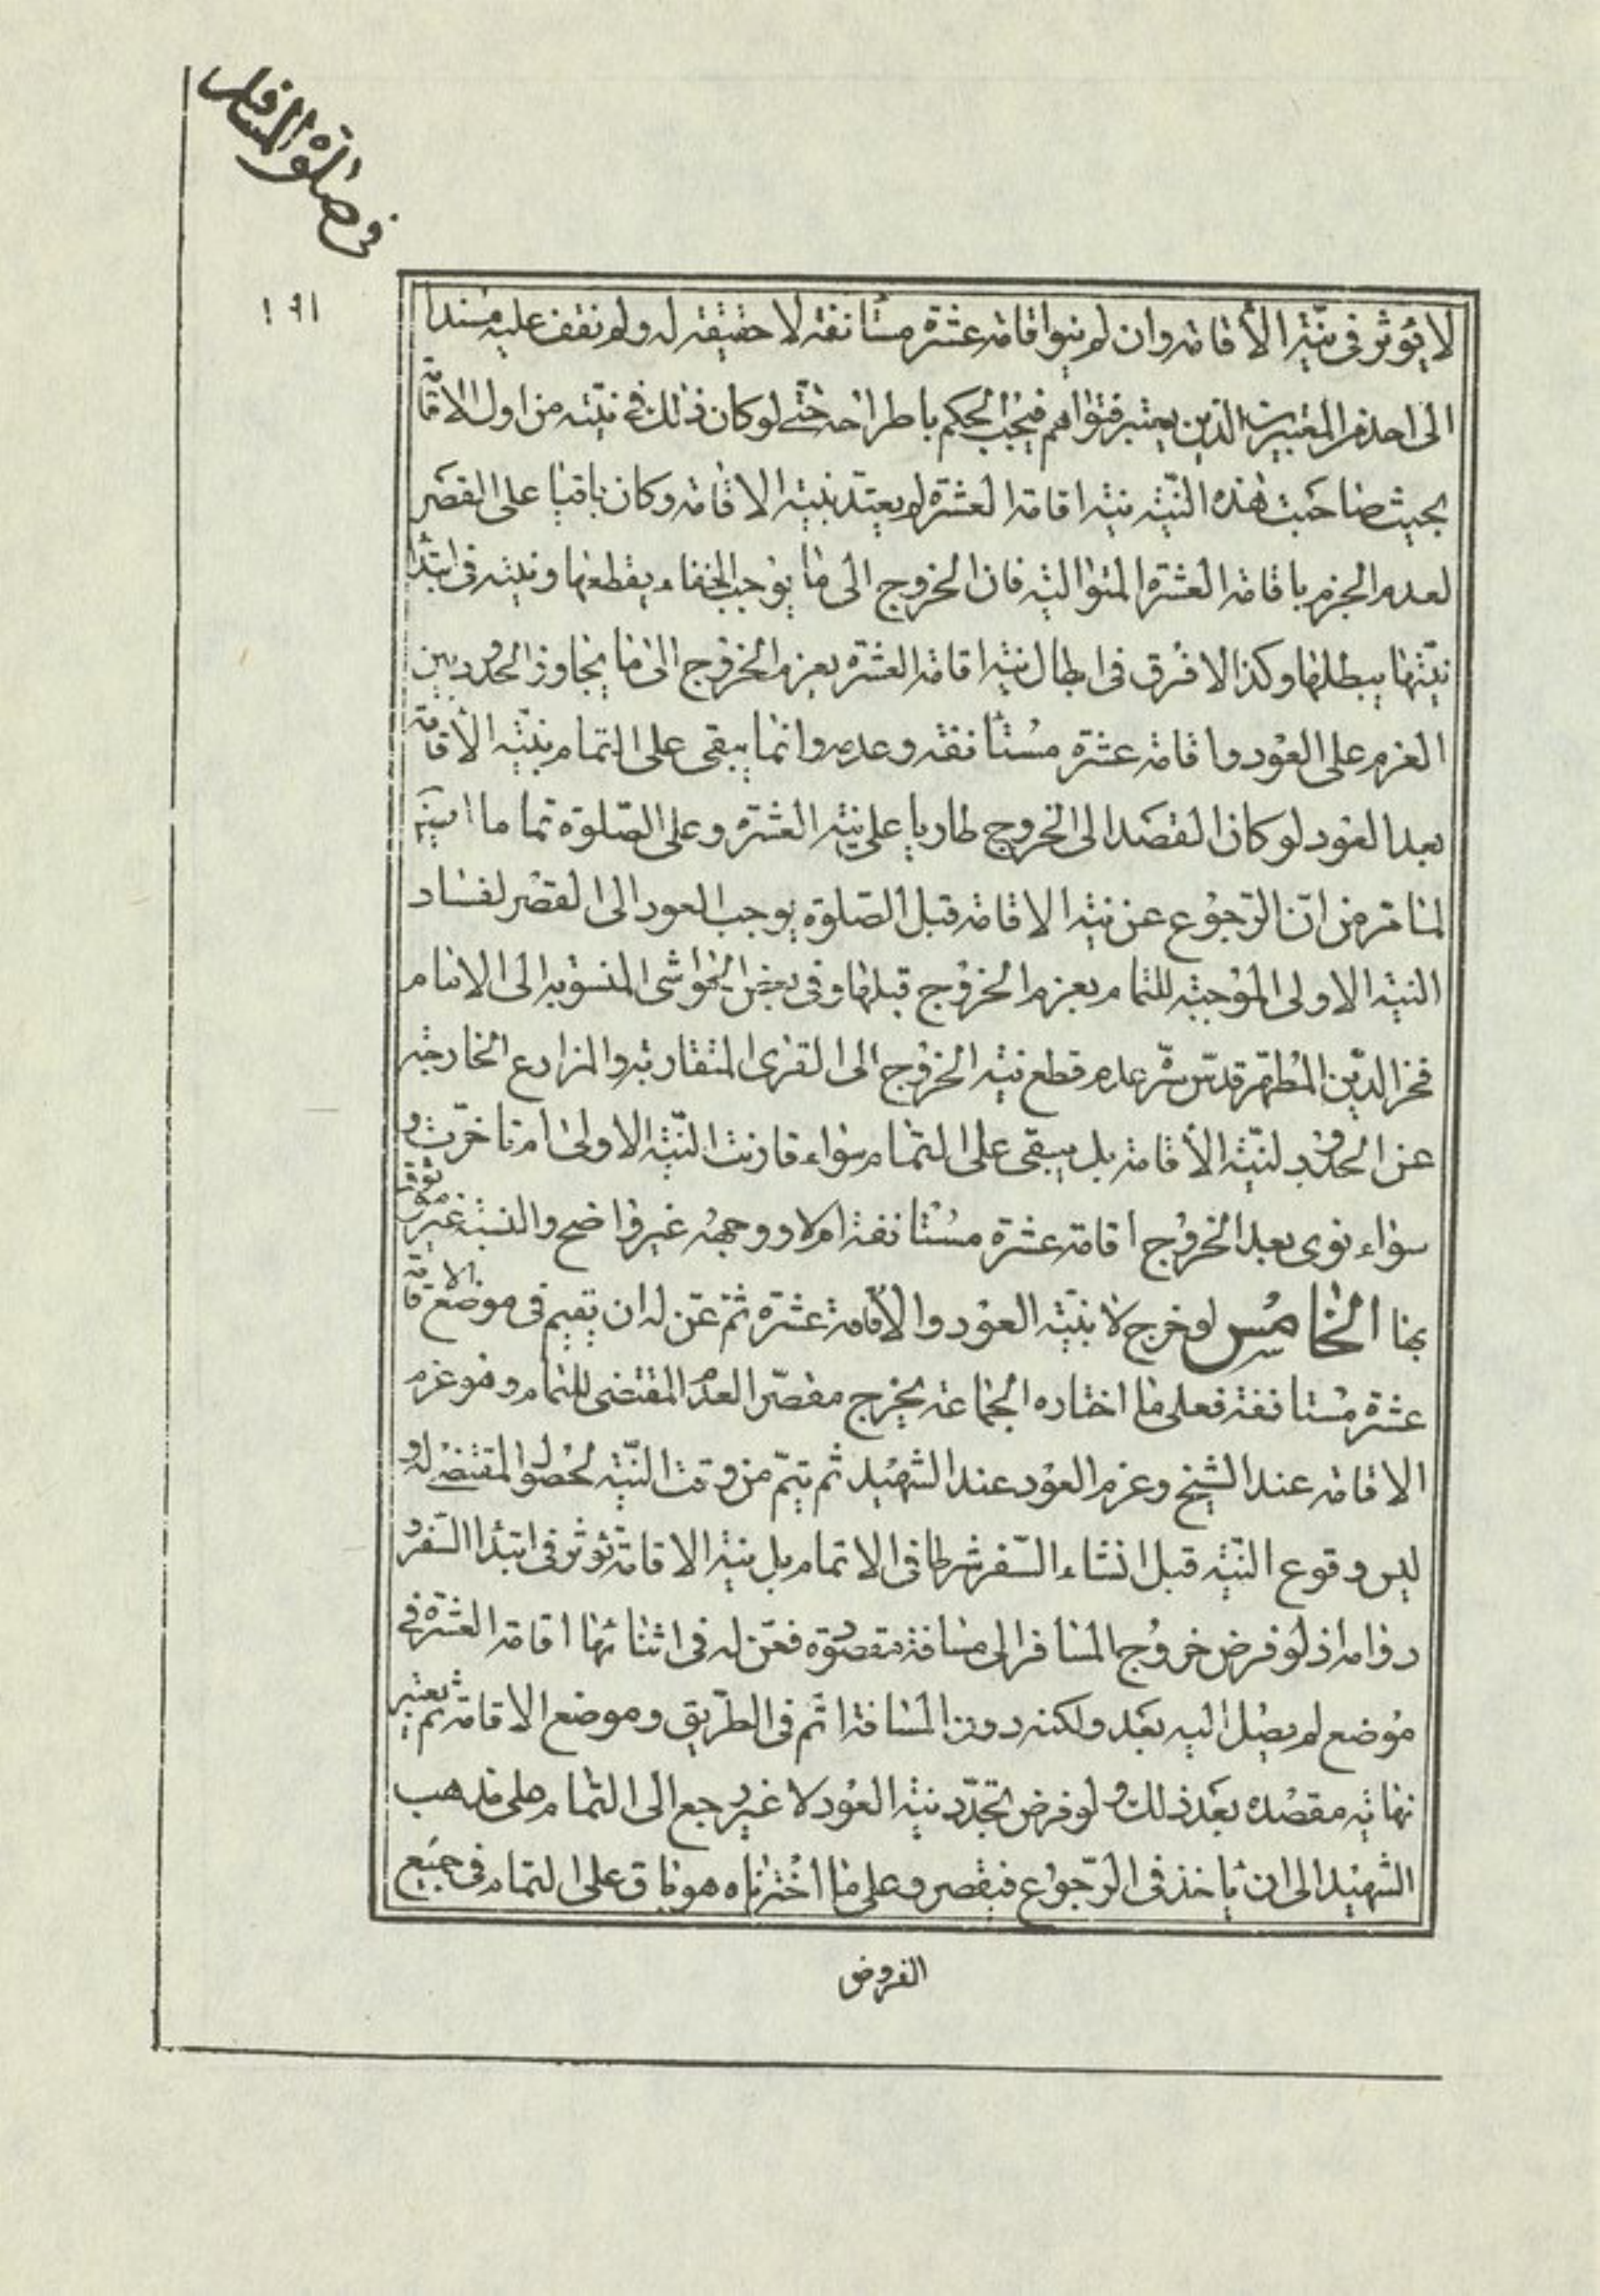 في صلوة المسافر
١٩١
لا يؤثر في نيّة الأقامة وان لم ينو اقامة عشرة مستأنفة لا حقيقة له ولم نقف عليه مسندا
الى احد من المعتبرين الذين يعتبر فتواهم فيجب الحكم باطراحه حتّى لو كان ذلك في نيّته من اول الاقامة
بحيث صاحبت هذه النيّة نية اقامة العشرة لم يعتدّ بنية الاقامة وكان باقيا على القصر
لعدم الجزم باقامة العشرة المتوالية فان الخروج الى ما يوجب الخفاء يقطعها ونيته في ابتداء
نيّتها يبطلها وكذا لا فرق في ابطال نية اقامة العشرة بعزم الخروج الى ما يتجاوز الحدود بين
العزم على العود واقامة عشرة مستأنفة وعدمه وانما يبقى على التمام بنيّة الأقامة
بعد العود لو كان القصد الى الخروج طاريا على نية العشرة وعلى الصّلوة تماما
لما مرّ من انّ الرّجوع عن نية الاقامة قبل الصّلوة يوجب العود الى القصر لفساد
النية الاولى الموجبة للتمام بعزم الخروج قبلها وفي بعض الحواشى المنسوبة الى الامام
فخر الدّين المطهّر قدّس سرّه عدم قطع نية الخروج الى القرى المتقاربة والمزارع الخارجة
عن الحدود لنيّة الأقامة بل يبقى على التمام سواء قارنت النّيّة الاولى ام تاخرّت و
سواء نوى بعد الخروج اقامة عشرة مستأنفة ام لا ووجهه غير واضح والنسبة غير موثوق
بها الخامس لو خرج لا بنيّة العود والاقامة عشرة ثم عنّ له ان يقيم في موضع الاقامة
عشرة مستانفة فعلى ما اختاره الجماعة يخرج مقصّرا لعدم المقتضى للتمام وهو عزم
الاقامة عند الشيخ وعزم العود عند الشهيد ثم يتمّ من وقت النّيّة لحصول المقتضى له و
ليس وقوع النّيّة قبل انشاء السّفر شرطا في الاتمام بل نية الاقامة تؤثر في ابتداء السّفر و
دوامه اذ لو فرض خروج المسافر الى مسافة مقصودة فعنّ له في اثنائها اقامة العشرة في
موضع لم يصل اليه بعد ولكنه دون المسافة اتّم في الطّريق وموضع الاقامة ثم يعتبر
نهاية مقصده بعد ذلك ولو فرض تجدّد نية العود لا غير رجع الى التمام على مذهب
الشهيد الى ان ياخذ في الرّجوع فيقصر وعلى ما اخترناه هو باق على التمام في جميع
الفروض